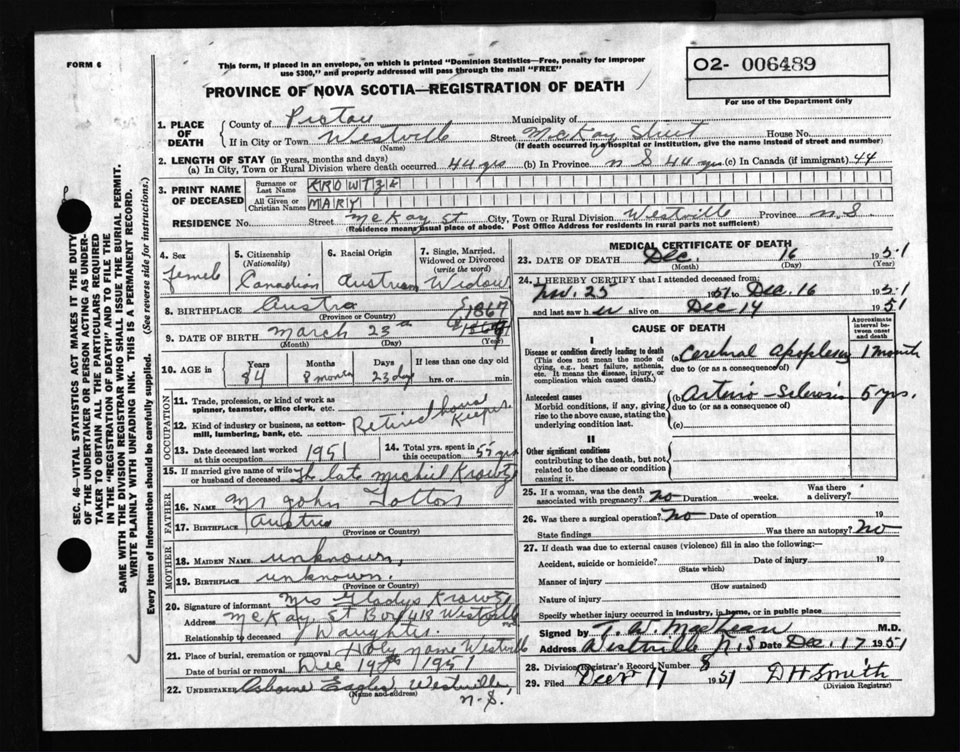 FORM 6
This form, if placed in an envelope, on which is printed "Dominion Statistics—Free, penalty for improper
use $300," and properly addressed will pass through the mail "FREE"
02- 006489
For use of the Department only
PROVINCE OF NOVA SCOTIA—REGISTRATION OF DEATH
1. PLACE OF DEATH
County of Pictou Municipality of
If in City or Town Westville Street McKay Street House No.
(Name) (If death occurred in a hospital or institution, give the name instead of street and number)
2. LENGTH OF STAY (in years, months and days)
(a) In City, Town or Rural Division where death occurred 44 yrs (b) In Province n S 44 yrs (c) In Canada (if immigrant) 44
3. PRINT NAME OF DECEASED
Surname or Last Name KROWTZE
All Given or Christian Names MARY
RESIDENCE No. Street McKay st City, Town or Rural Division Westville Province n.S
(Residence means usual place of abode. Post Office Address for residents in rural parts not sufficient)
4. Sex 5. Citizenship (Nationality) 6. Racial Origin 7. Single, Married, Widowed or Divorced (write the word)
femele Canadian Austrian Widow
8. BIRTHPLACE Austra
(Province or Country)
1867
9. DATE OF BIRTH March 23rd
(Month) (Day) (Year)
10. AGE in Years Months Days If less than one day old
84 8 months 23 days hrs. or min.
OCCUPATION
11. Trade, profession, or kind of work as spinner, teamster, office clerk, etc.
12. Kind of industry or business, as cotton-mill, lumbering, bank, etc.
Retired house Keeper
13. Date deceased last worked at this occupation 1951 14. Total yrs. spent in this occupation 55 yrs
15. If married give name of wife or husband of deceased The late Michiel Krowtz
FATHER
16. Name Mr John Totton
17. Birthplace Austria
(Province or Country)
MOTHER
18. MAIDEN NAME unknown,
19. BIRTHPLACE unknown.
(Province or Country)
20. Signature of informant Mrs Gladys Krowtz
Address McKay St Box 418 Westville
Relationship to deceased Daughter
21. Place of burial, cremation or removal Holy name Westville
Date of burial or removal Dec 19th 1951
22. UNDERTAKER Osborne Eagles Westville,
(Name and address) n.S.
MEDICAL CERTIFICATE OF DEATH
23. DATE OF DEATH Dec. 16 1951
(Month) (Day) (Year)
24. I HEREBY CERTIFY that I attended deceased from:
Nov. 25 1951 to Dec. 16 1951
and last saw h er alive on Dec 14 1951
CAUSE OF DEATH
Approximate interval between onset and death
I
Disease or condition directly leading to death
(This does not mean the mode of dying, e.g., heart failure, asthenia, etc. It means the disease, injury, or complication which caused death.)
(a) Cerebral Apoplexy 1 month
due to (or as a consequence of)
Antecedent causes
Morbid conditions, if any, giving rise to the above cause, stating the underlying condition last.
(b) Arterio-Sclerosis 5 yrs.
due to (or as a consequence of)
(c)
II
Other significant conditions
contributing to the death, but not related to the disease or condition causing it.
25. If a woman, was the death associated with pregnancy? no Duration weeks. Was there a delivery?
26. Was there a surgical operation? no Date of operation 19
State findings Was there an autopsy? no
27. If death was due to external causes (violence) fill in also the following:
Accident, suicide or homicide? Date of injury 19
(State which)
Manner of injury
(How sustained)
Nature of injury
Specify whether injury occurred in industry, in home, or in public place
Signed by T. W. MacLean M.D.
Address Westville N.S Date Dec. 17 1951
28. Division Registrar's Record Number 8
29. Filed Decr 17 1951 D H Smith
(Division Registrar)
SEC. 46—VITAL STATISTICS ACT MAKES IT THE DUTY
OF THE UNDERTAKER OR PERSON ACTING AS UNDER-
TAKER TO OBTAIN ALL THE PARTICULARS REQUIRED
IN THE "REGISTRATION OF DEATH" AND TO FILE THE
SAME WITH THE DIVISION REGISTRAR WHO SHALL ISSUE THE BURIAL PERMIT.
WRITE PLAINLY WITH UNFADING INK. THIS IS A PERMANENT RECORD.
Every item of information should be carefully supplied. (See reverse side for instructions.)